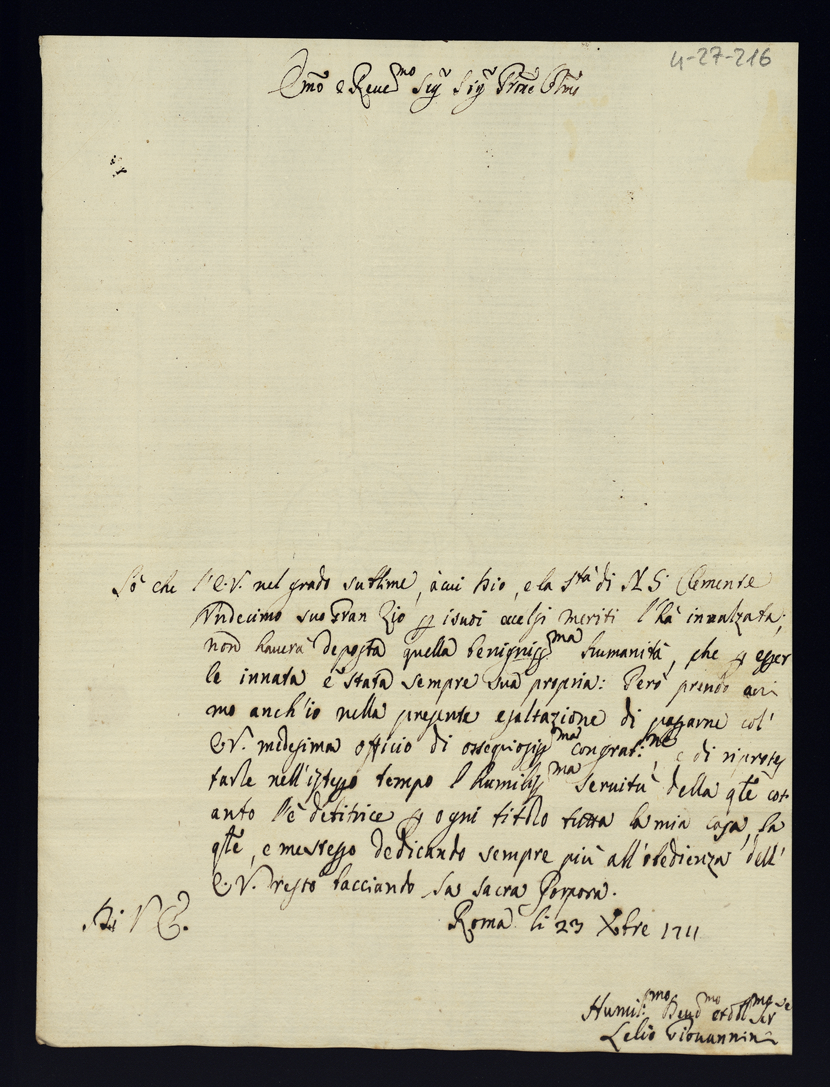 4-27-216
Em̃o e Reuer.mo Sig.r Sig.r Prõne Col.mo
Sò che l'E.V. nel grado sublime, à cui Dio, e la S.tà di N. S. Clemente
Vndecimo suo Gran Zio ꝑ i suoi eccelsi meriti l'hà innalzata;
non hauerà deposta quella benigniss.ma humanità, che ꝑ esser
le innata è stata sempre sua propria: Però prendo ani-
mo anch'io nella presente esaltazione di passarne col'
E.V. medesima officio di ossequiosiss.ma congrat.ne, e di riprotes
tarle nell'istesso tempo l'humiliss.ma seruitù della q̃le cot-
anto l'è debitrice ꝑ ogni titolo tutta la mia casa, la
q̃le, e me stesso dedicando sempre più all'obedienza dell'
E.V. resto bacciando la sacra Porpora.
Di V. E. Roma li 23 Xbre 1711
Humil.mo Deuo.mo et Obl.mo Ser.re
Lelio Giouannini